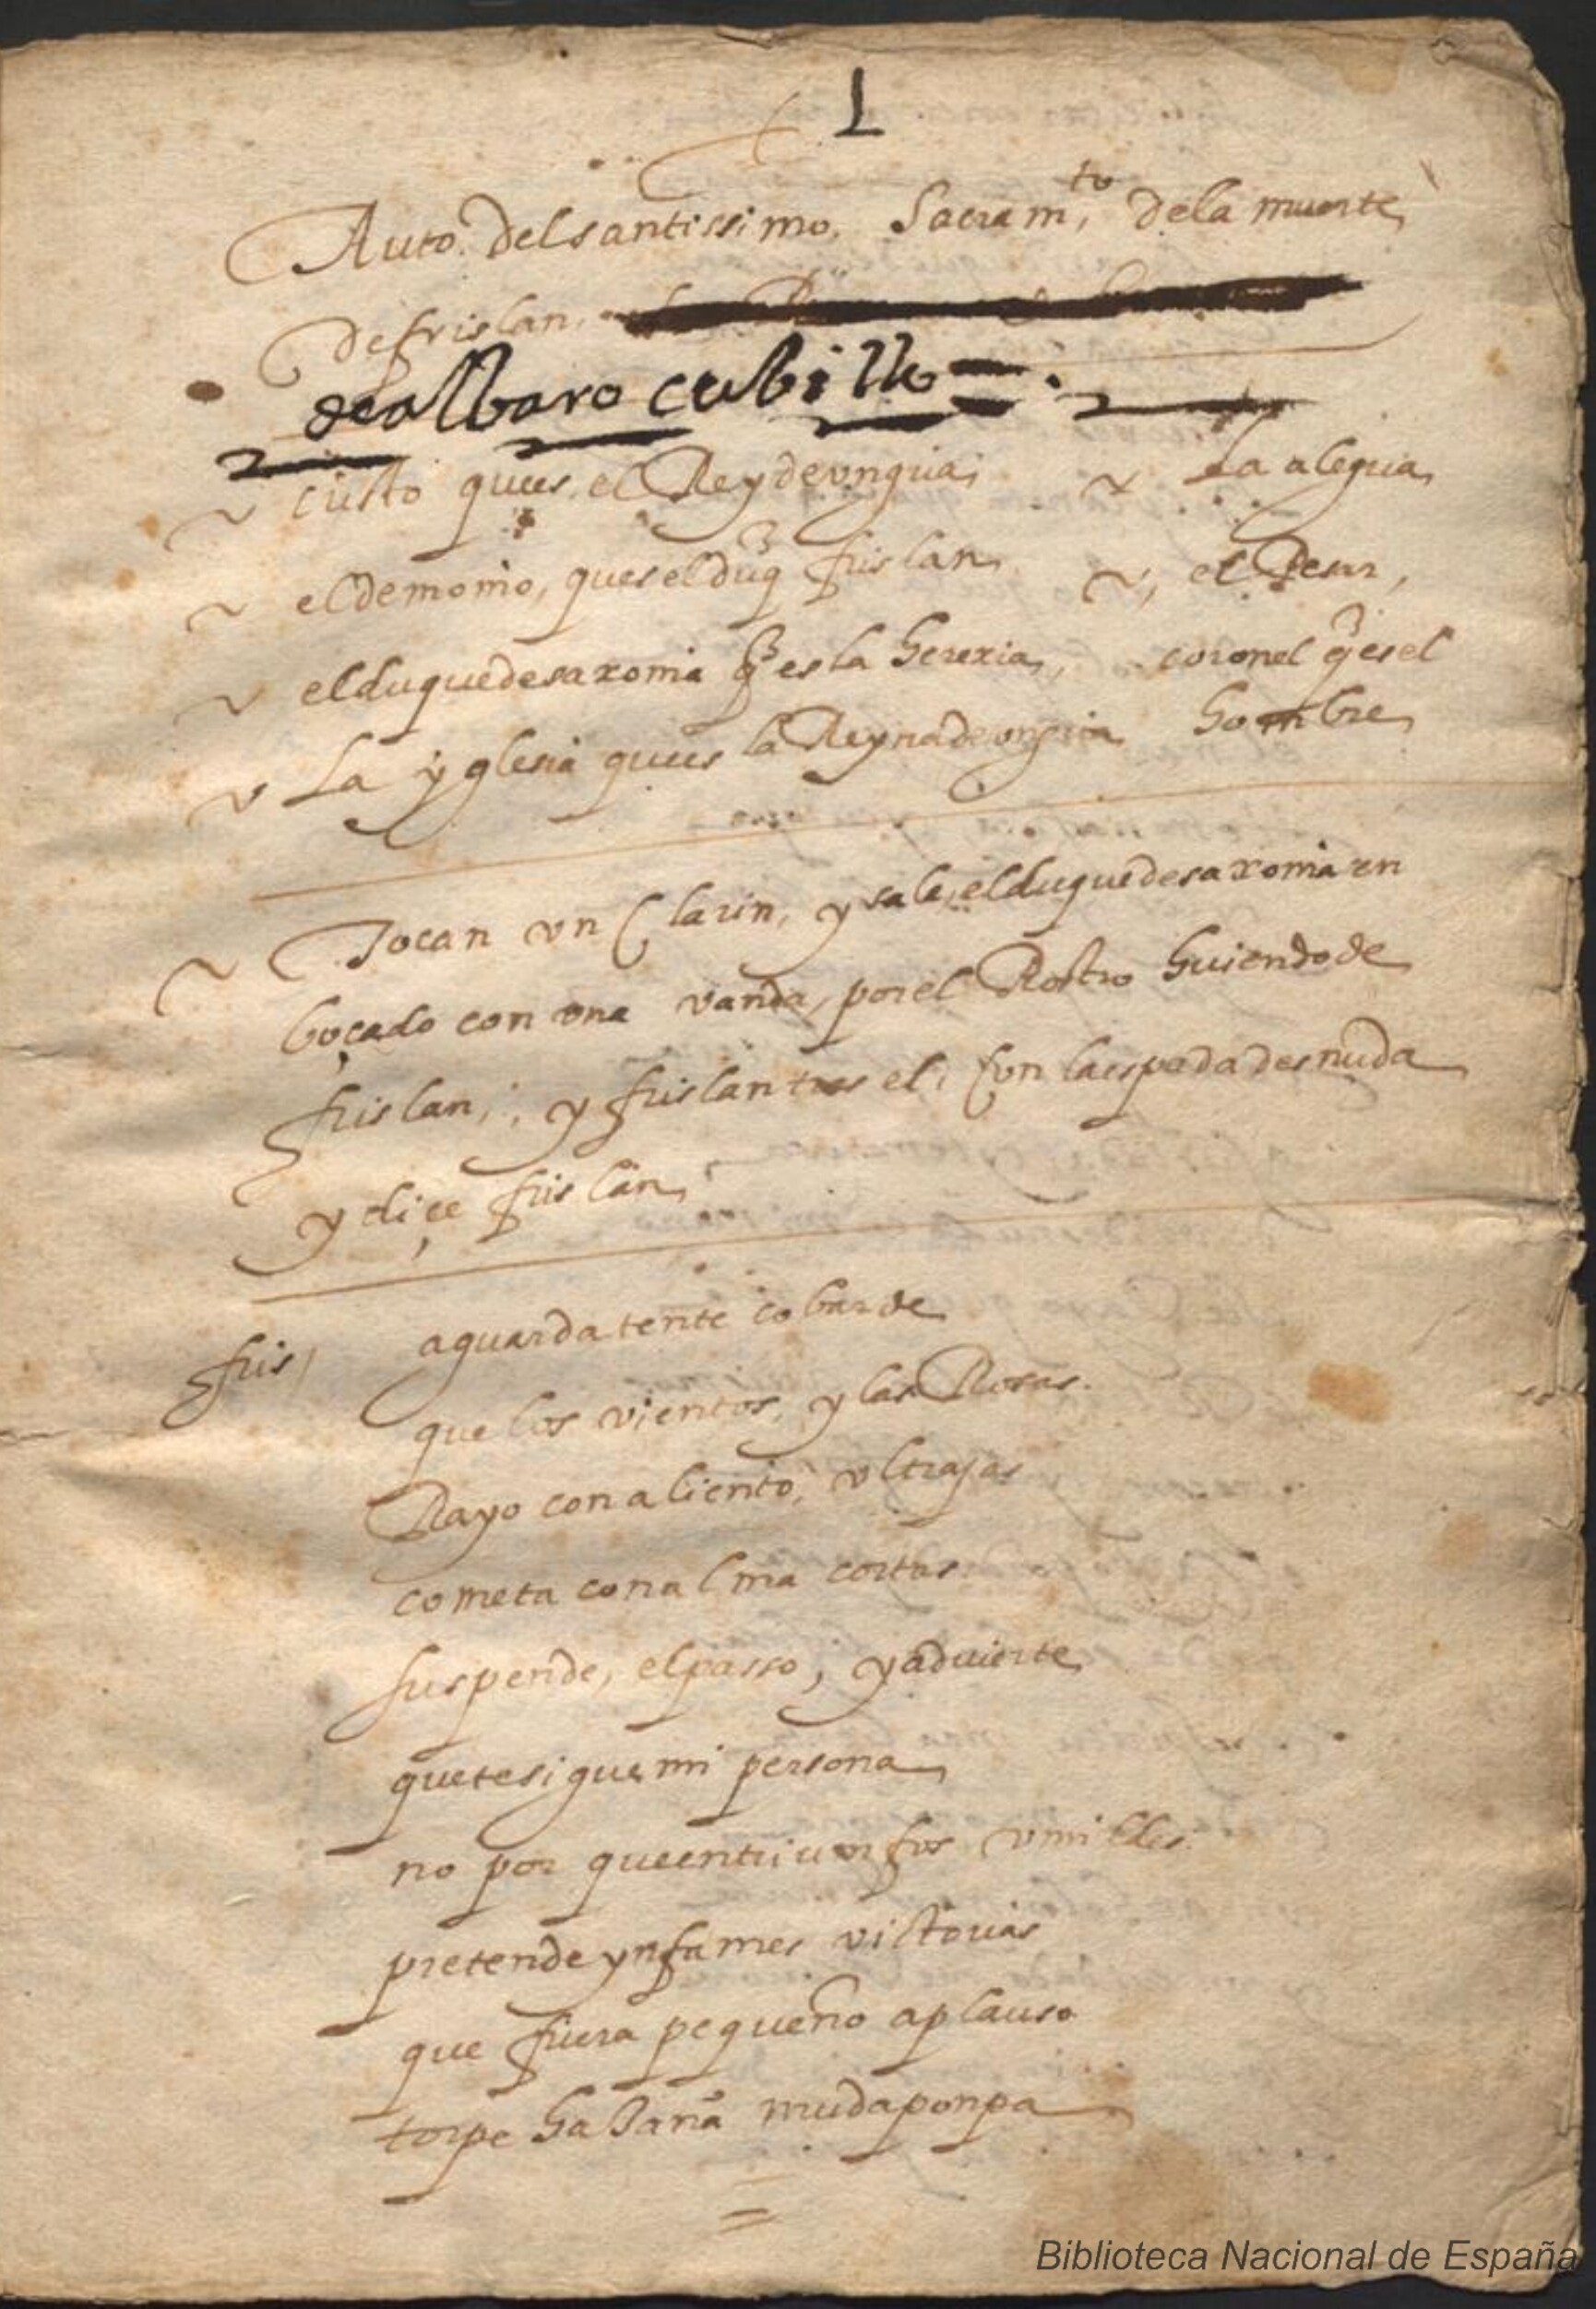 1
Auto. Del santissimo. Sacram.to De la muerte
De frislan.
de albaro cubillo =.
cristo ques el Rey de ungria, La alegria
el demonio, ques el duq̃ frislan el Pesar,
el duque de saxonia q̃ es la herexia, coronel q̃ es el
La yglesia ques la Reyna de ungria hombre
Tocan un Clarin, y sale, el duque de saxonia en
boçado con una vanda, por el Rostro huiendo de
frislan, y frislan tras el, Con la espada desnuda
y diçe frislan,
fris, aguarda tente cobarde
que los vientos, y las Rosas.
Rayo con aliento, ultrajas
cometa con alma cortas
suspende, el passo, y advierte
que te sigue mi persona
no por que en triunfos umilldes
pretende ynfames victorias
que fuera pequeño aplauso
torpe hazaña muda ponpa
Biblioteca Nacional de España